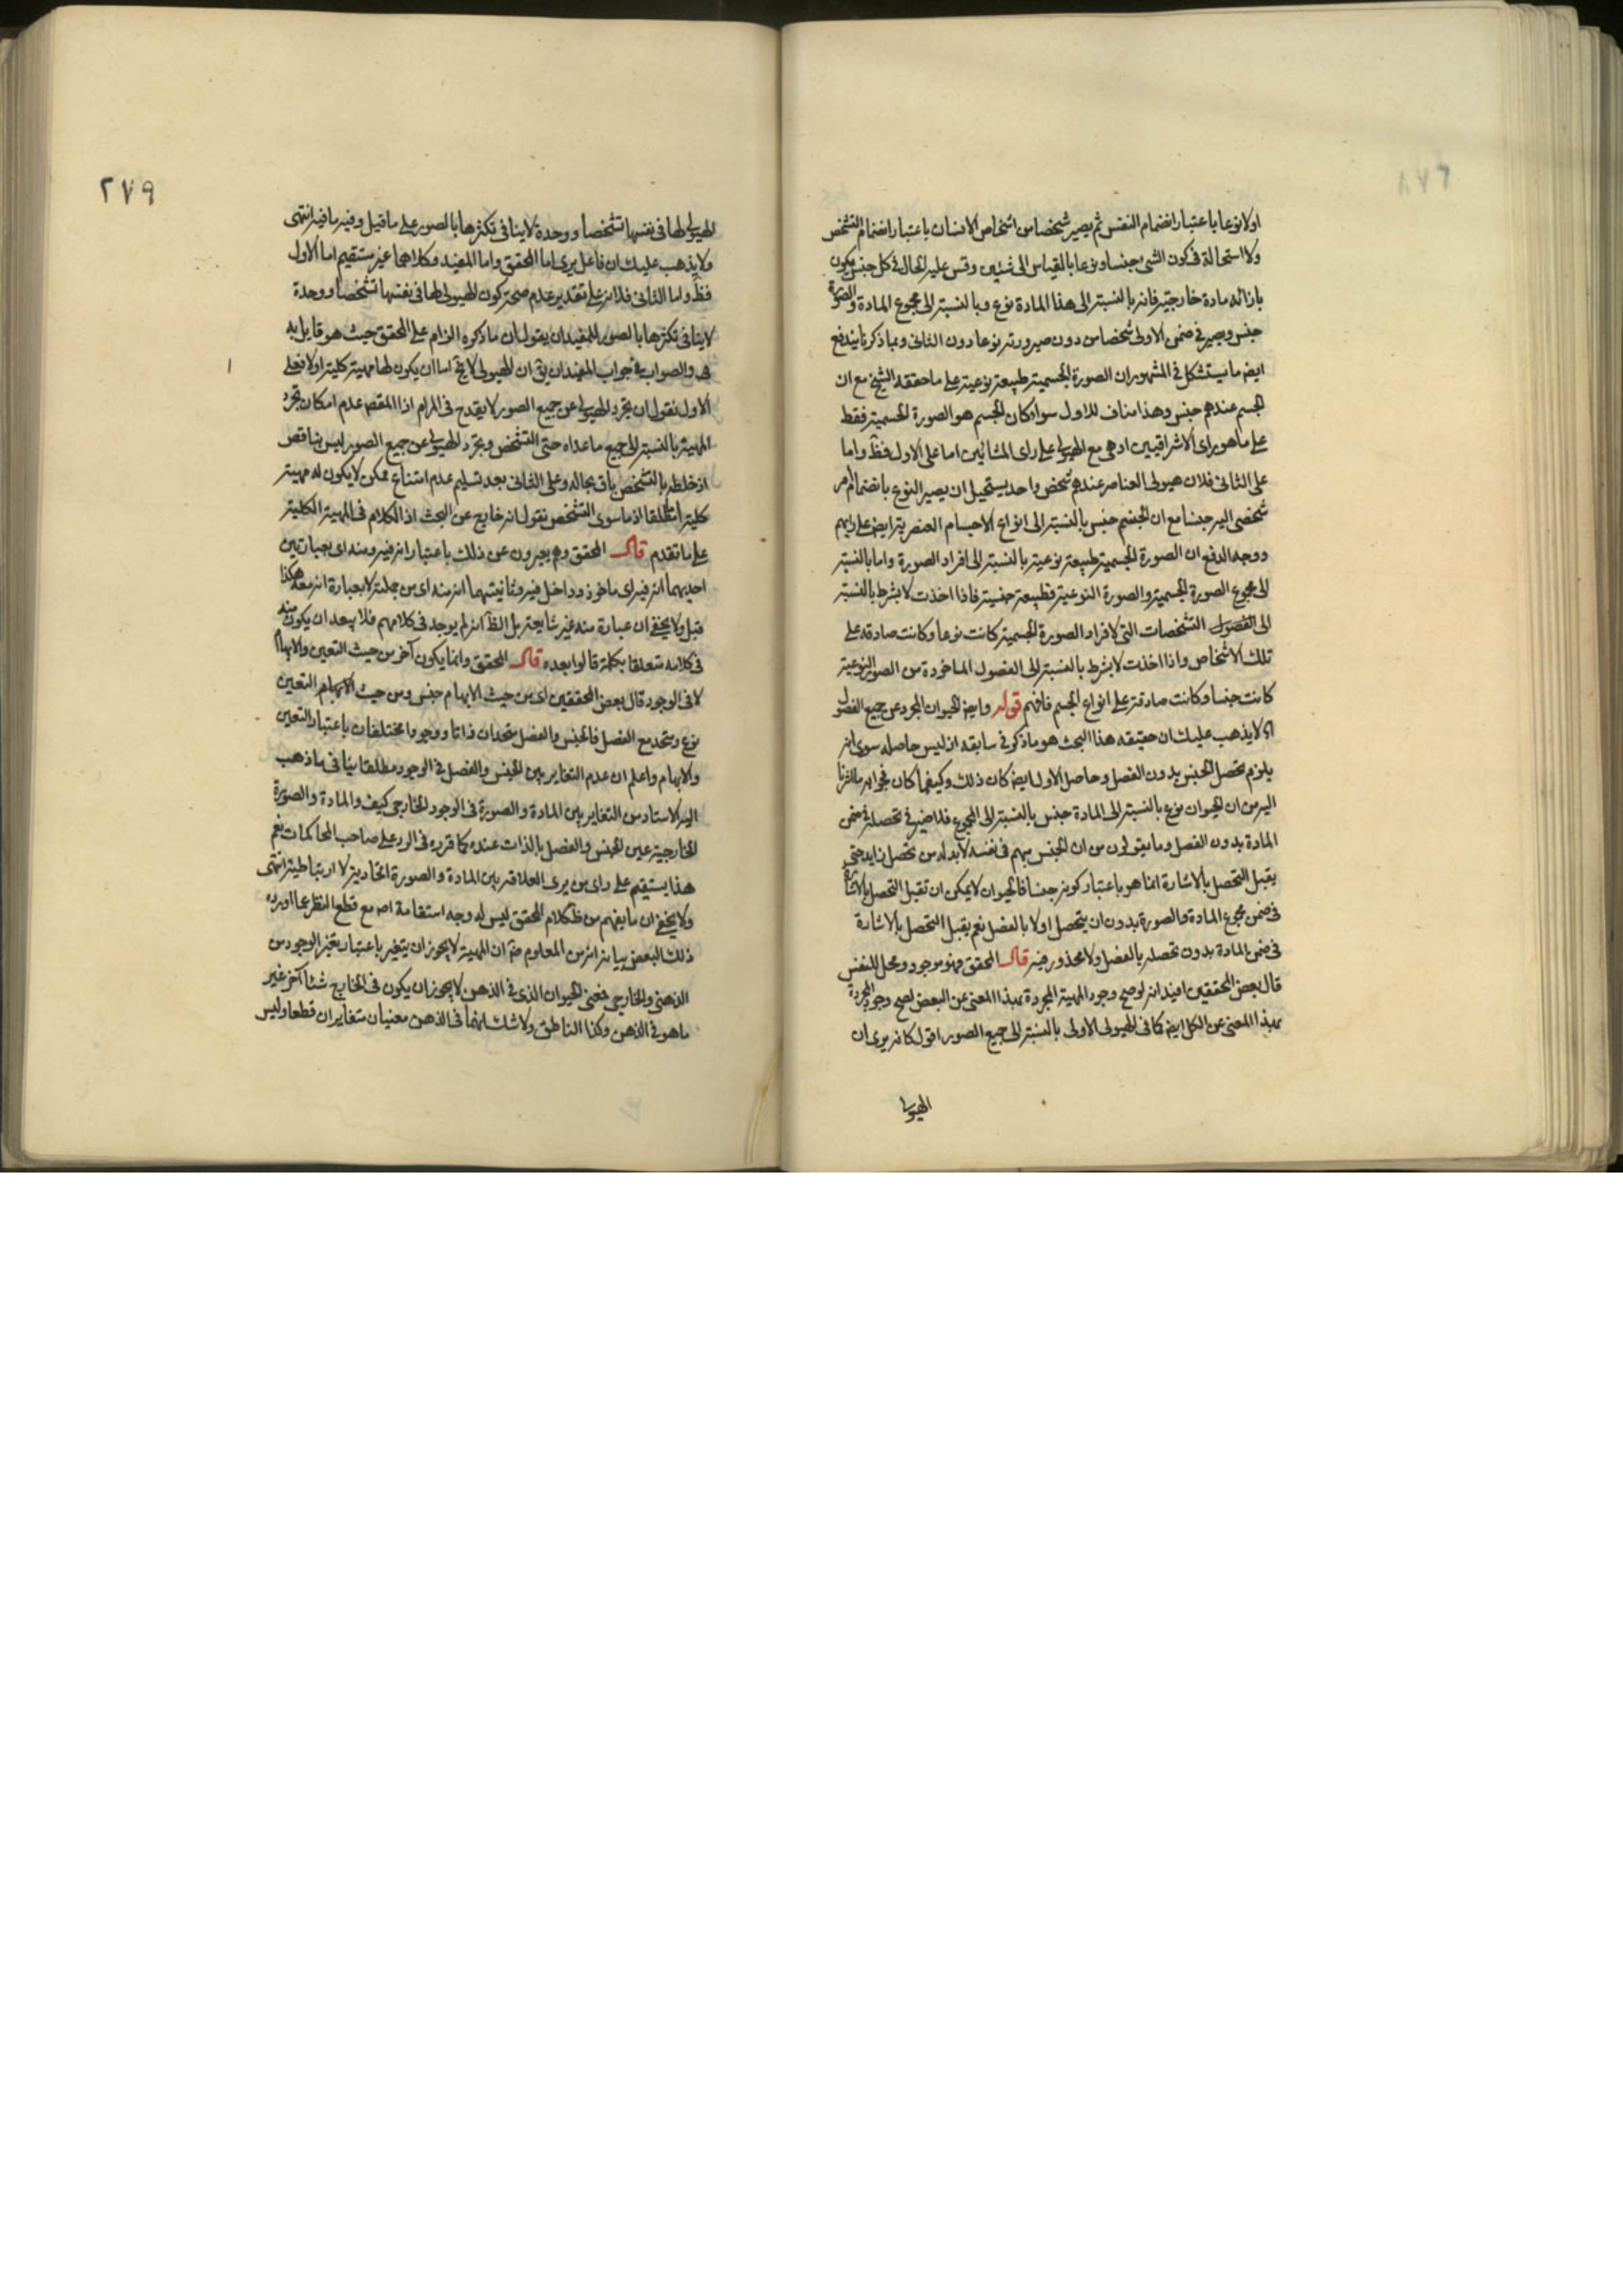 اولا نوعا باعتبار انضمام النفس ثم يصير شخصا من اشخاص الانسان باعتبار انضمام التشخص
ولا استحالة فى كون الشى جنسا ونوعا بالقياس الى شيئين وقس عليه الحال فى كل جنس يكون
بازائه مادة خارجية فانه بالنسبة الى هذا المادة نوع وبالنسبة الى مجموع المادة والصورة
جنس ويصير فى ضمن الاولى شخصا من دون صيرورته نوعا دون الثانى وبما ذكرنا يندفع
ايض ما يستشكل فى المشهور ان الصورة الجسمية طبيعة نوعية على ما حققه الشيخ مع ان
الجسم عندهم جنس وهذا مناف للاول سواء كان الجسم هو الصورة الجسمية فقط
على ما هو راى الاشراقيين او هى مع الهيولى على راى المشائين اما على الاول فظ واما
على الثانى فلان هيولى العناصر عندهم شخص واحد يستحيل ان يصير النوع بانضمام امر
شخصى اليه جنسا مع ان الجسم جنس بالنسبة الى انواع الاجسام العنصرية ايض على رايهم
ووجه الدفع ان الصورة الجسمية طبيعة نوعية بالنسبة الى افراد الصورة واما بالنسبة
الى مجموع الصورة الجسمية والصورة النوعية فطبيعة جنسية فاذا اخذت لا بشرط بالنسبة
الى الفصول التشخصات التى لافراد الصورة الجسمية كانت نوعا وكانت صادقه على
تلك الاشخاص واذا اخذت لا بشرط بالنسبة الى الفصول الماخوذة من الصور النوعية
كانت جنسا وكانت صادقة على انواع الجسم فافهم قوله وايض الحيوان المجرد عن جميع الفصول
اه لا يذهب عليك ان حقيقه هذا البحث هو ما ذكر فى سابقه اذ ليس حاصله سوى انه
يلزم تحصل الجنس بدون الفصل وحاصل الاول ايض كان ذلك وكيفما كان فجوابه ما اشرنا
اليه من ان الحيوان نوع بالنسبة الى المادة جنس بالنسبة الى المجموع فلا ضير فى تحصله فى ضمن
المادة بدون الفصل وما يقولون من ان الجنس مبهم فى نفسه لا بد له من تحصل زايد حتى
يقبل التحصل بالاشارة انما هو باعتبار كونه جنسا فالحيوان لا يمكن ان تقبل التحصل بالاشارة
فى ضمن مجموع المادة والصورة بدون ان يتحصل اولا بالفصل نعم يقبل التحصل بالاشارة
فى ضمن المادة بدون تحصله بالفصل ولا محذور فيه قال المحقق فهو موجود ومحل للنفس
قال بعض المحققين افيد انه لو صح وجود المهية المجردة بهذا المعنى عن البعض لصح وجود المجردة
بهذا المعنى عن الكل ايض كما فى الهيولى الاولى بالنسبة الى جميع الصور اقول كانه يرى ان
الهيولى
٢٧٩
الهيولى لها فى نفسها تشخصا ووحدة لا ينافى تكثرها بالصور على ما قيل وفيه ما فيه انتهى
ولا يذهب عليك ان فاعل يرى اما المحقق واما المفيد وكلاهما غير مستقيم اما الاول
فظ واما الثانى فلانه على تقدير عدم صحة كون الهيولى لها فى نفسها تشخصا ووحدة
لا ينافى تكثرها بالصور للمفيد ان يقول ان ما ذكره الزام على المحقق حيث هو قايل به
والصواب فى جواب المفيد ان يق ان الهيولى لا يخ اما ان يكون لها مهية كلية او لا فعلى
الاول نقول ان تجرد الهيولى عن جميع الصور لا يقدح فى المرام اذ المقص عدم امكان تجرد
المهية بالنسبة الى جميع ما عداه حتى التشخص وتجرد الهيولى عن جميع الصور ليس بناقض
اذ خلطه بالتشخص باق بحاله وعلى الثانى بعد تسليم عدم امتناع ممكن لا يكون له مهية
كلية مطلقا اذ ما سوى التشخص نقول انه خارج عن البحث اذ الكلام فى المهية الكلية
على ما تقدم قال المحقق وهم يعبرون عن ذلك باعتبار انه فيه ومنه اى بعبارتين
احديهما انه فيه اى ماخوذ وداخل فيه وثانيتهما انه منه اى من جملته لا بعبارة انه معه هكذا
قيل ولا يخفى ان عبارة منه غير شايعة بل الظ انه لم يوجد فى كلامهم فلا يبعد ان يكون منه
فى كلامه متعلقا بكلمة قالوا بعده قال المحقق وانما يكون آخر من حيث التعين والابهام
لا فى الوجود قال بعض المحققين اى من حيث الابهام جنس ومن حيث الابهام التعين
نوع ومتحد مع الفصل فالجنس والفصل متحدان ذاتا ووجودا مختلفان باعتبار التعين
والابهام واعلم ان عدم التغاير بين الجنس والفصل فى الوجود مطلقا ينافى ما ذهب
اليه الاستاد من التغاير بين المادة والصورة فى الوجود الخارجى كيف والمادة والصورة
الخارجية عين الجنس والفصل بالذات عنده كما قرره فى الرد على صاحب المحاكمات نعم
هذا يستقيم على راى من يرى العلاقة بين المادة والصورة اتحادية لا ارتباطية انتهى
ولا يخفى ان ما يفهم من ظ كلام المحقق ليس له وجه استقامة اصلا مع قطع النظر عما اورده
ذلك البعض بيانه انه من المعلوم ان المهية لا يجوز ان يتغير باعتبار تغير الوجود من
الذهنى والخارجى فمعنى الحيوان الذى فى الذهن لا يجوز ان يكون فى الخارج شئا آخر غير
ما هو فى الذهن وكذا الناطق ولا شك انهما فى الذهن معنيان متغايران قطعا وليس